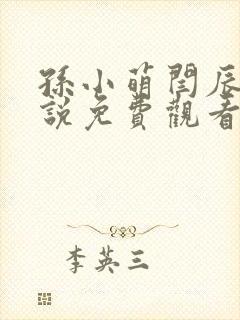 孫小萌閆辰
說免費觀看
李英三